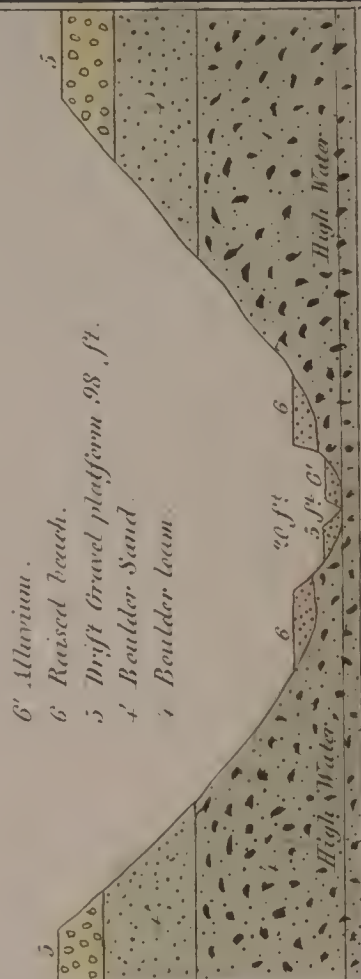 6' Alluvium.
6 Raised beach.
5 Drift Gravel platform 98 ft.
4' Boulder Sand
4 Boulder loam
5
5
4'
4'
6
20 ft.
6
5 ft. 6'
High Water
High Water